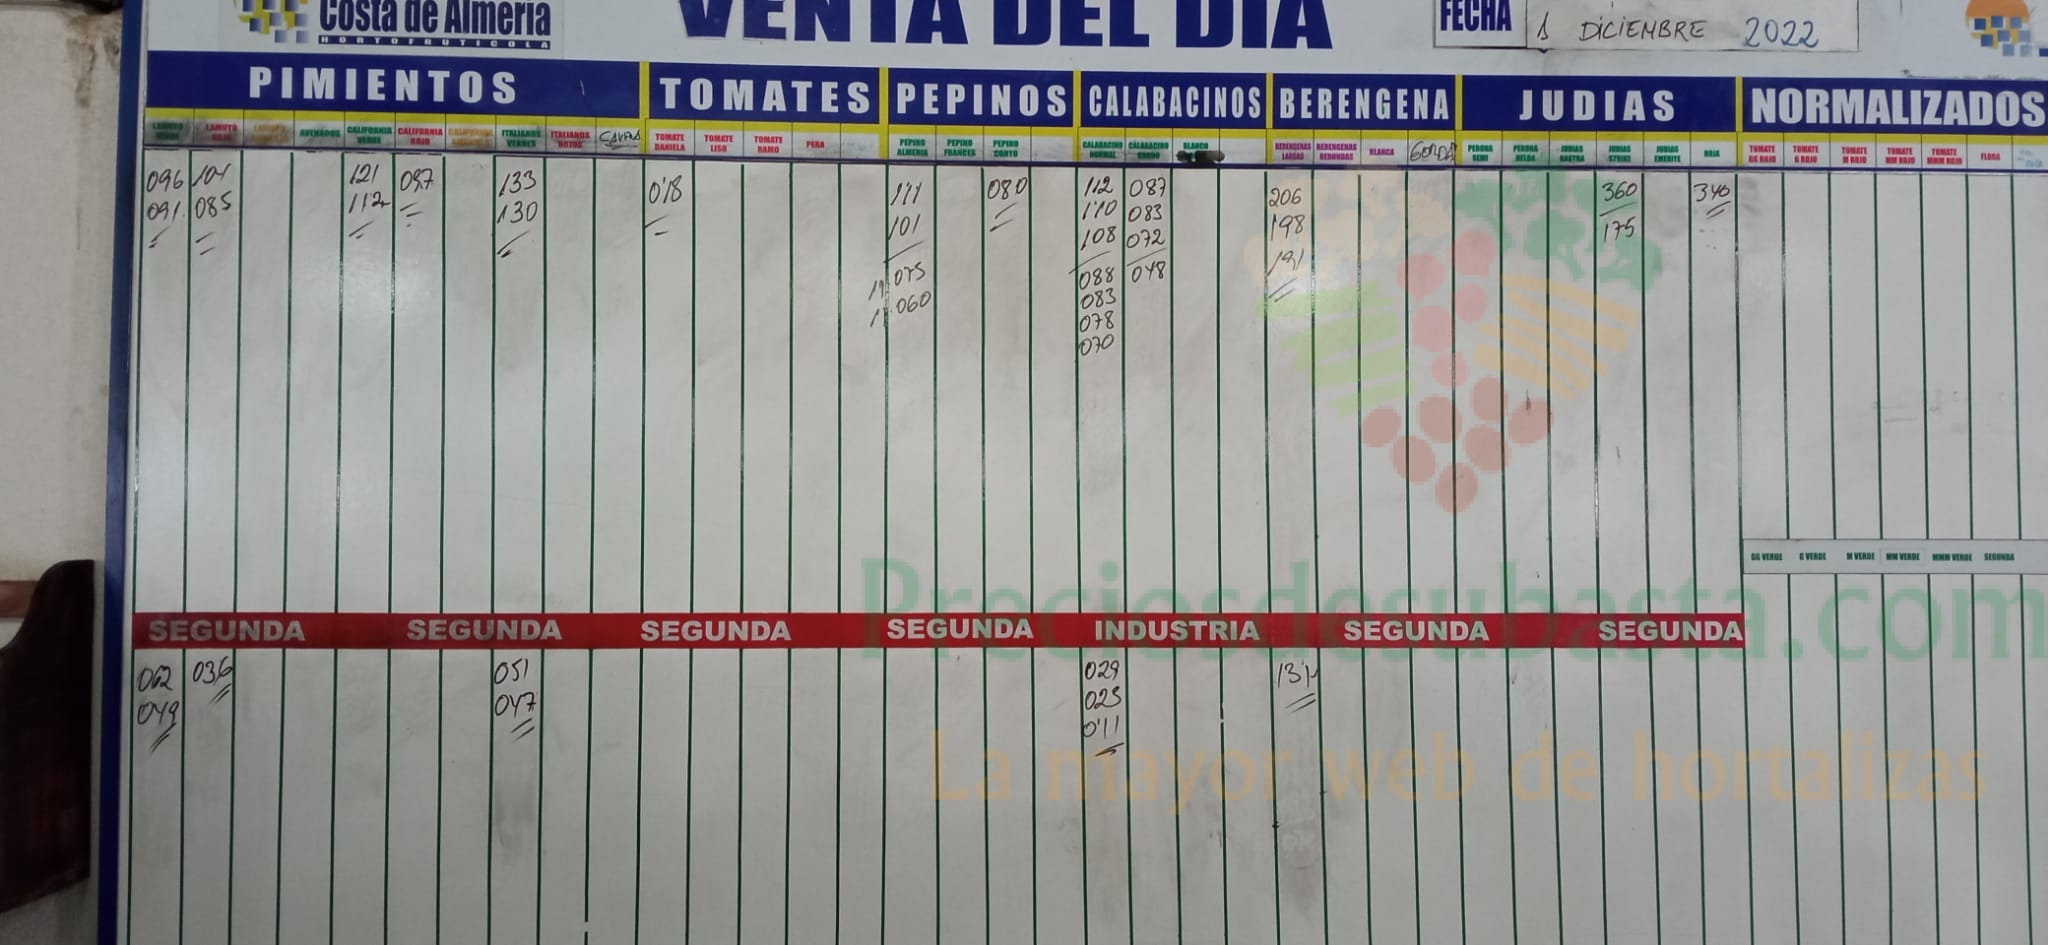 Costa de Almería
HORTOFRUTICOLA
VENTA DEL DIA
FECHA
1 DICIEMBRE 2022
PIMIENTOS TOMATES PEPINOS CALABACINOS BERENGENA JUDIAS NORMALIZADOS
LAMUYO ROJO CALIFORNIA VERDE CALIFORNIA ROJO ITALIANOS VERDES ITALIANOS ROJOS TOMATE DANIELA TOMATE LISO TOMATE RAMO PERA PEPINO ALMERIA PEPINO FRANCES PEPINO CORTO CALABACINO NORMAL CALABACINO GORDO BLANCO BERENGENAS LARGAS BERENGENAS REDONDAS BLANCA GORDA PERONA SEMI PERONA HELDA JUDIAS RASTRA JUDIAS STRIKE JUDIAS EMERITE ROJA TOMATE GG ROJO TOMATE G ROJO TOMATE M ROJO TOMATE MM ROJO TOMATE MMM ROJO FLORA
096 104 121 097 133 0'18 111 080 112 087 206 360 340
091 085 112 130 101 1'10 083 198 175
108 072 191
075 088 048
060 083
078
070
GG VERDE G VERDE M VERDE MM VERDE MMM VERDE SEGUNDA
SEGUNDA SEGUNDA SEGUNDA SEGUNDA INDUSTRIA SEGUNDA SEGUNDA
062 036 051 029
049 047 023
0'11
Preciosdesubasta.com
La mayor web de hortalizas